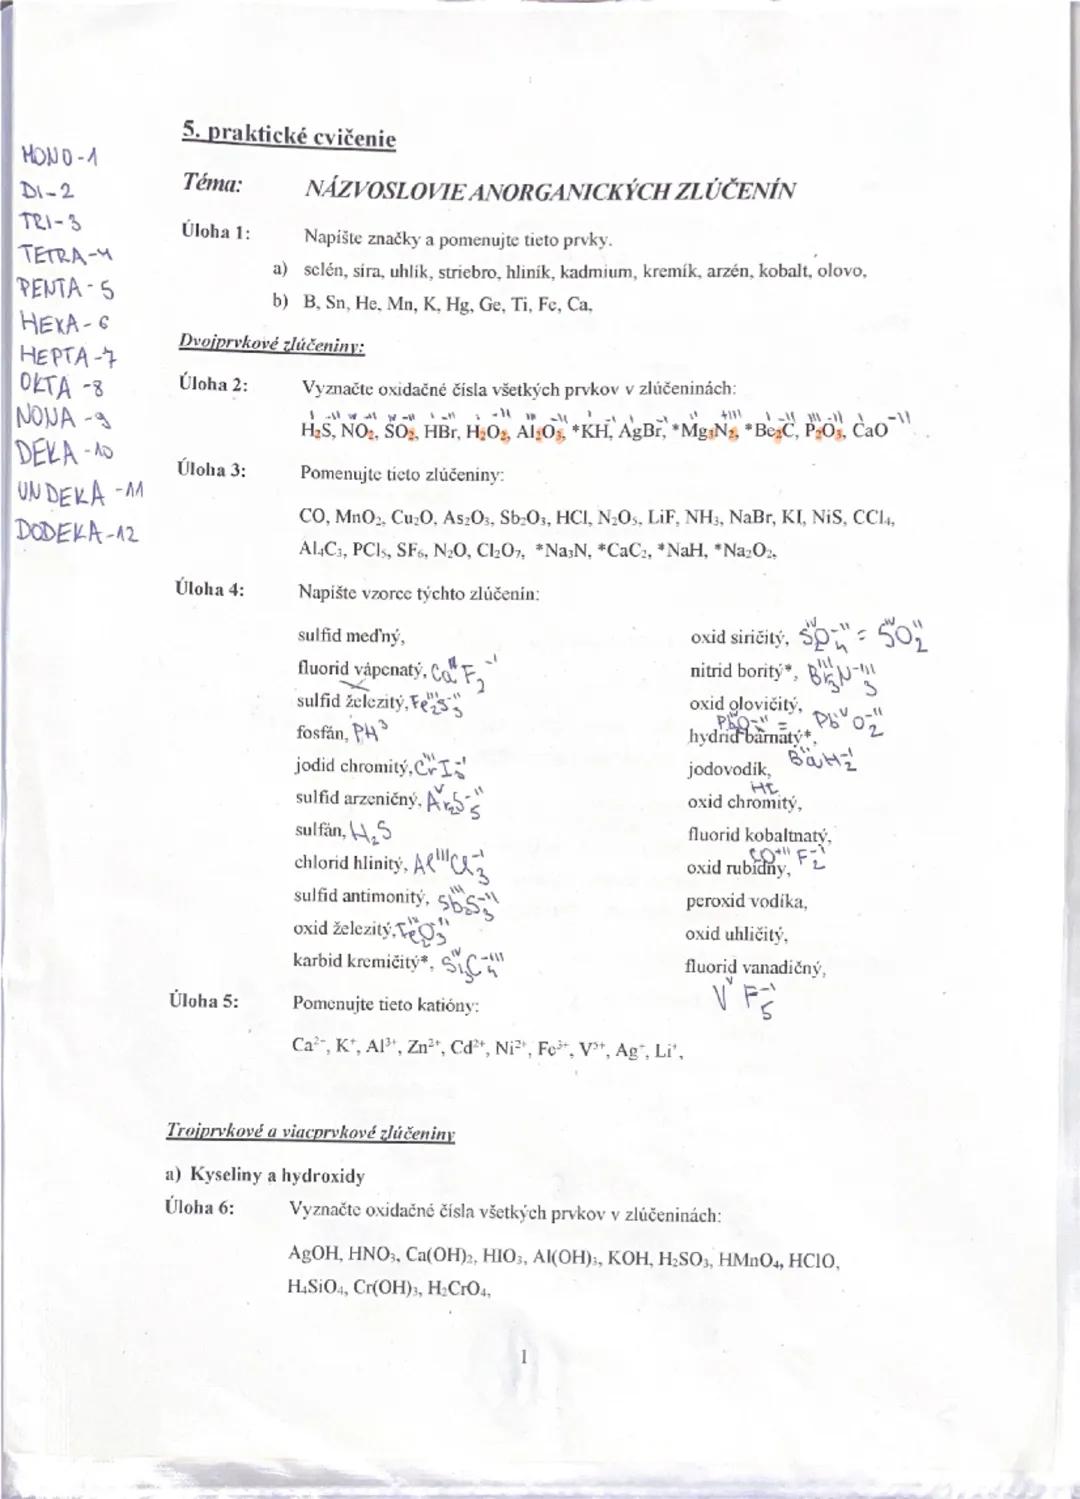 5. praktické cvičenie
MONO-1
DI-2
TRI-3
TETRA-4
PENTA-5
HEXA-6
HEPTA-7
OKTA-8
NONA-9
DEKA-10
UNDEKA-11
DODEKA-12
Téma: NÁZVOSLOVIE ANORGANICKÝCH ZLÚČENÍN
Úloha 1: Napíšte značky a pomenujte tieto prvky.
a) selén, síra, uhlík, striebro, hliník, kadmium, kremík, arzén, kobalt, olovo,
b) B, Sn, He, Mn, K, Hg, Ge, Ti, Fe, Ca,
Dvojprvkové zlúčeniny:
Úloha 2: Vyznačte oxidačné čísla všetkých prvkov v zlúčeninách:
H₂S, NO₂, SO₂, HBr, H₂O₂, Al₂O₃, *KH, AgBr, *Mg₃N₂, *Be₂C, P₂O₃, CaO
Úloha 3: Pomenujte tieto zlúčeniny:
CO, MnO₂, Cu₂O, As₂O₃, Sb₂O₃, HCl, N₂O₅, LiF, NH₃, NaBr, KI, NiS, CCl₄,
Al₄C₃, PCl₅, SF₆, N₂O, Cl₂O₇, *Na₃N, *CaC₂, *NaH, *Na₂O₂,
Úloha 4: Napíšte vzorce týchto zlúčenín:
sulfid meďný,
fluorid vápenatý, Caᴵᴵ F₂⁻ᴵ
sulfid železitý, Fe₂ᴵᴵᴵS₃⁻ᴵᴵ
fosfán, PH³
jodid chromitý, Crᴵᴵᴵ I₃⁻ᴵ
sulfid arzeničný,
sulfán, H₂S
chlorid hlinitý, Alᴵᴵᴵ Cl₃⁻ᴵ
sulfid antimonitý, Sb₂ᴵᴵᴵS₃⁻ᴵᴵ
oxid železitý, Fe₂O₃
karbid kremičitý*,
oxid siričitý, = SO₂
nitrid boritý*,
oxid olovičitý,
hydrid barnatý*,
BaH₂⁻ᴵ
jodovodík,
HI
oxid chromitý,
fluorid kobaltnatý,
CO⁺ᴵᴵ F₂⁻ᴵ
oxid rubídny,
peroxid vodíka,
oxid uhličitý,
fluorid vanadičný,
Vⱽ F₅⁻ᴵ
Úloha 5: Pomenujte tieto katióny:
Ca²⁺, K⁺, Al³⁺, Zn²⁺, Cd²⁺, Ni²⁺, Fe³⁺, V⁵⁺, Ag⁺, Li⁺,
Trojprvkové a viacprvkové zlúčeniny
a) Kyseliny a hydroxidy
Úloha 6: Vyznačte oxidačné čísla všetkých prvkov v zlúčeninách:
AgOH, HNO₃, Ca(OH)₂, HIO₃, Al(OH)₃, KOH, H₂SO₃, HMnO₄, HClO,
H₄SiO₄, Cr(OH)₃, H₂CrO₄,
1